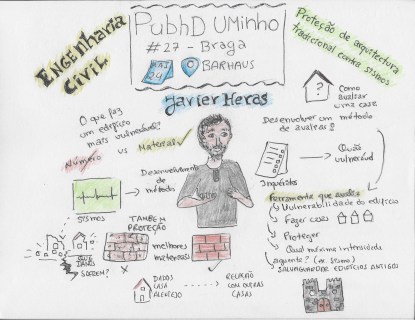 Engenharia
Civil
PubhD UMinho
#27 - Braga
MAI
29
BARHAUS
Proteção de arquitectura
tradicional contra sismos
Javier Heras
O que faz
um edifício
mais vulnerável?
Número vs Materiais
?
Como
avaliar
uma casa
Desenvolver um método
de avaliar?
Quão
vulnerável
Inquéritos
Desenvolvimento
de método
sismos
Ferramenta que avalia
Vulnerabilidade do edifício
Fazer casas
Proteger
Qual máxima intensidade
aguenta? (ex. sismo)
SALVAGUARDAR EDIFÍCIOS ANTIGOS
TAMBÉM
PROTEÇÃO
melhores
materiais
SOFREM?
DADOS
CASA
ALENTEJO
REPLICÁ-LO
COM OUTRAS
CASAS